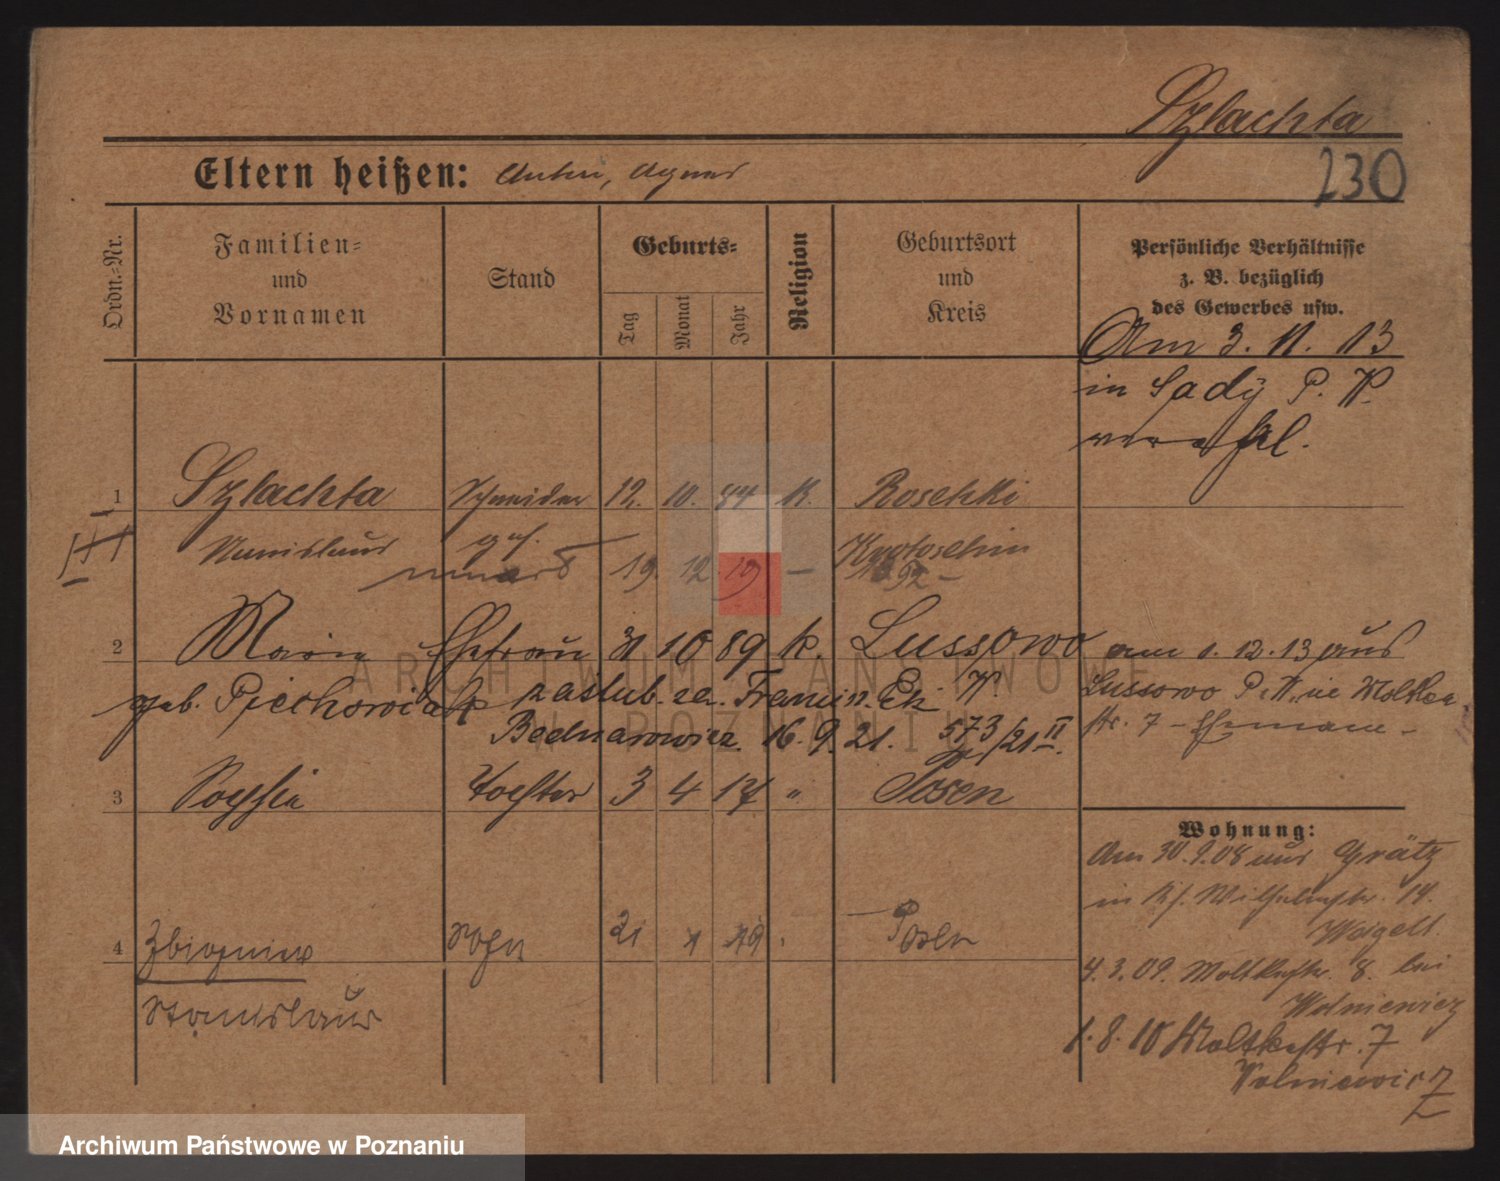 Szlachta
230
Eltern heißen: Anton, Agnes
Ordn.-Nr.
Familien-
und
Vornamen
Stand
Geburts-
Tag
Monat
Jahr
Religion
Geburtsort
und
Kreis
Persönliche Verhältnisse
z. B. bezüglich
des Gewerbes usw.
Am 3. 11. 13
in Sady P. W.
verehel.
1 Szlachta Schneider 12. 10. 84 K. Roschki
Stanislaus Krotoschin
19. 12. 19 —
2 Maria Ehefrau 31 10 89 k. Lussowo
geb. Piechowiak W.
zaślub. ze. Francisz. Ek.
Bednarowicz. 16. 9. 21. 573/21 II
am 1. 12. 13 aus
Lussowo P. W. in Moltke
str. 7 - Ehemann -
3 Sophie Tochter 3 4 17 " Posen
4 Zbigniew Sohn 21 19 Posen
Stanislaus
Wohnung:
Am 30. 9. 08 aus Grätz
in Kf. Wilhelmstr. 14.
Weigelt.
4. 3. 09. Moltkestr. 8. bei
Wolniewicz
1. 8. 10 Moltkestr. 7
Wolniewicz
ARCHIWUM PAŃSTWOWE
W POZNANIU
Archiwum Państwowe w Poznaniu